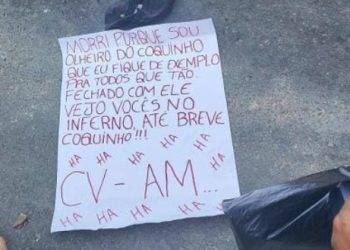 MORRI PORQUE SOU
OLHEIRO DO COQUINHO
QUE EU FIQUE DE EXEMPLO
PRA TODOS QUE TÃO
FECHADO COM ELE
VEJO VOCÊS NO
INFERNO, ATÉ BREVE
COQUINHO!!!
HA HA HA HA HA
CV-AM...
HA HA HA HA HA HA